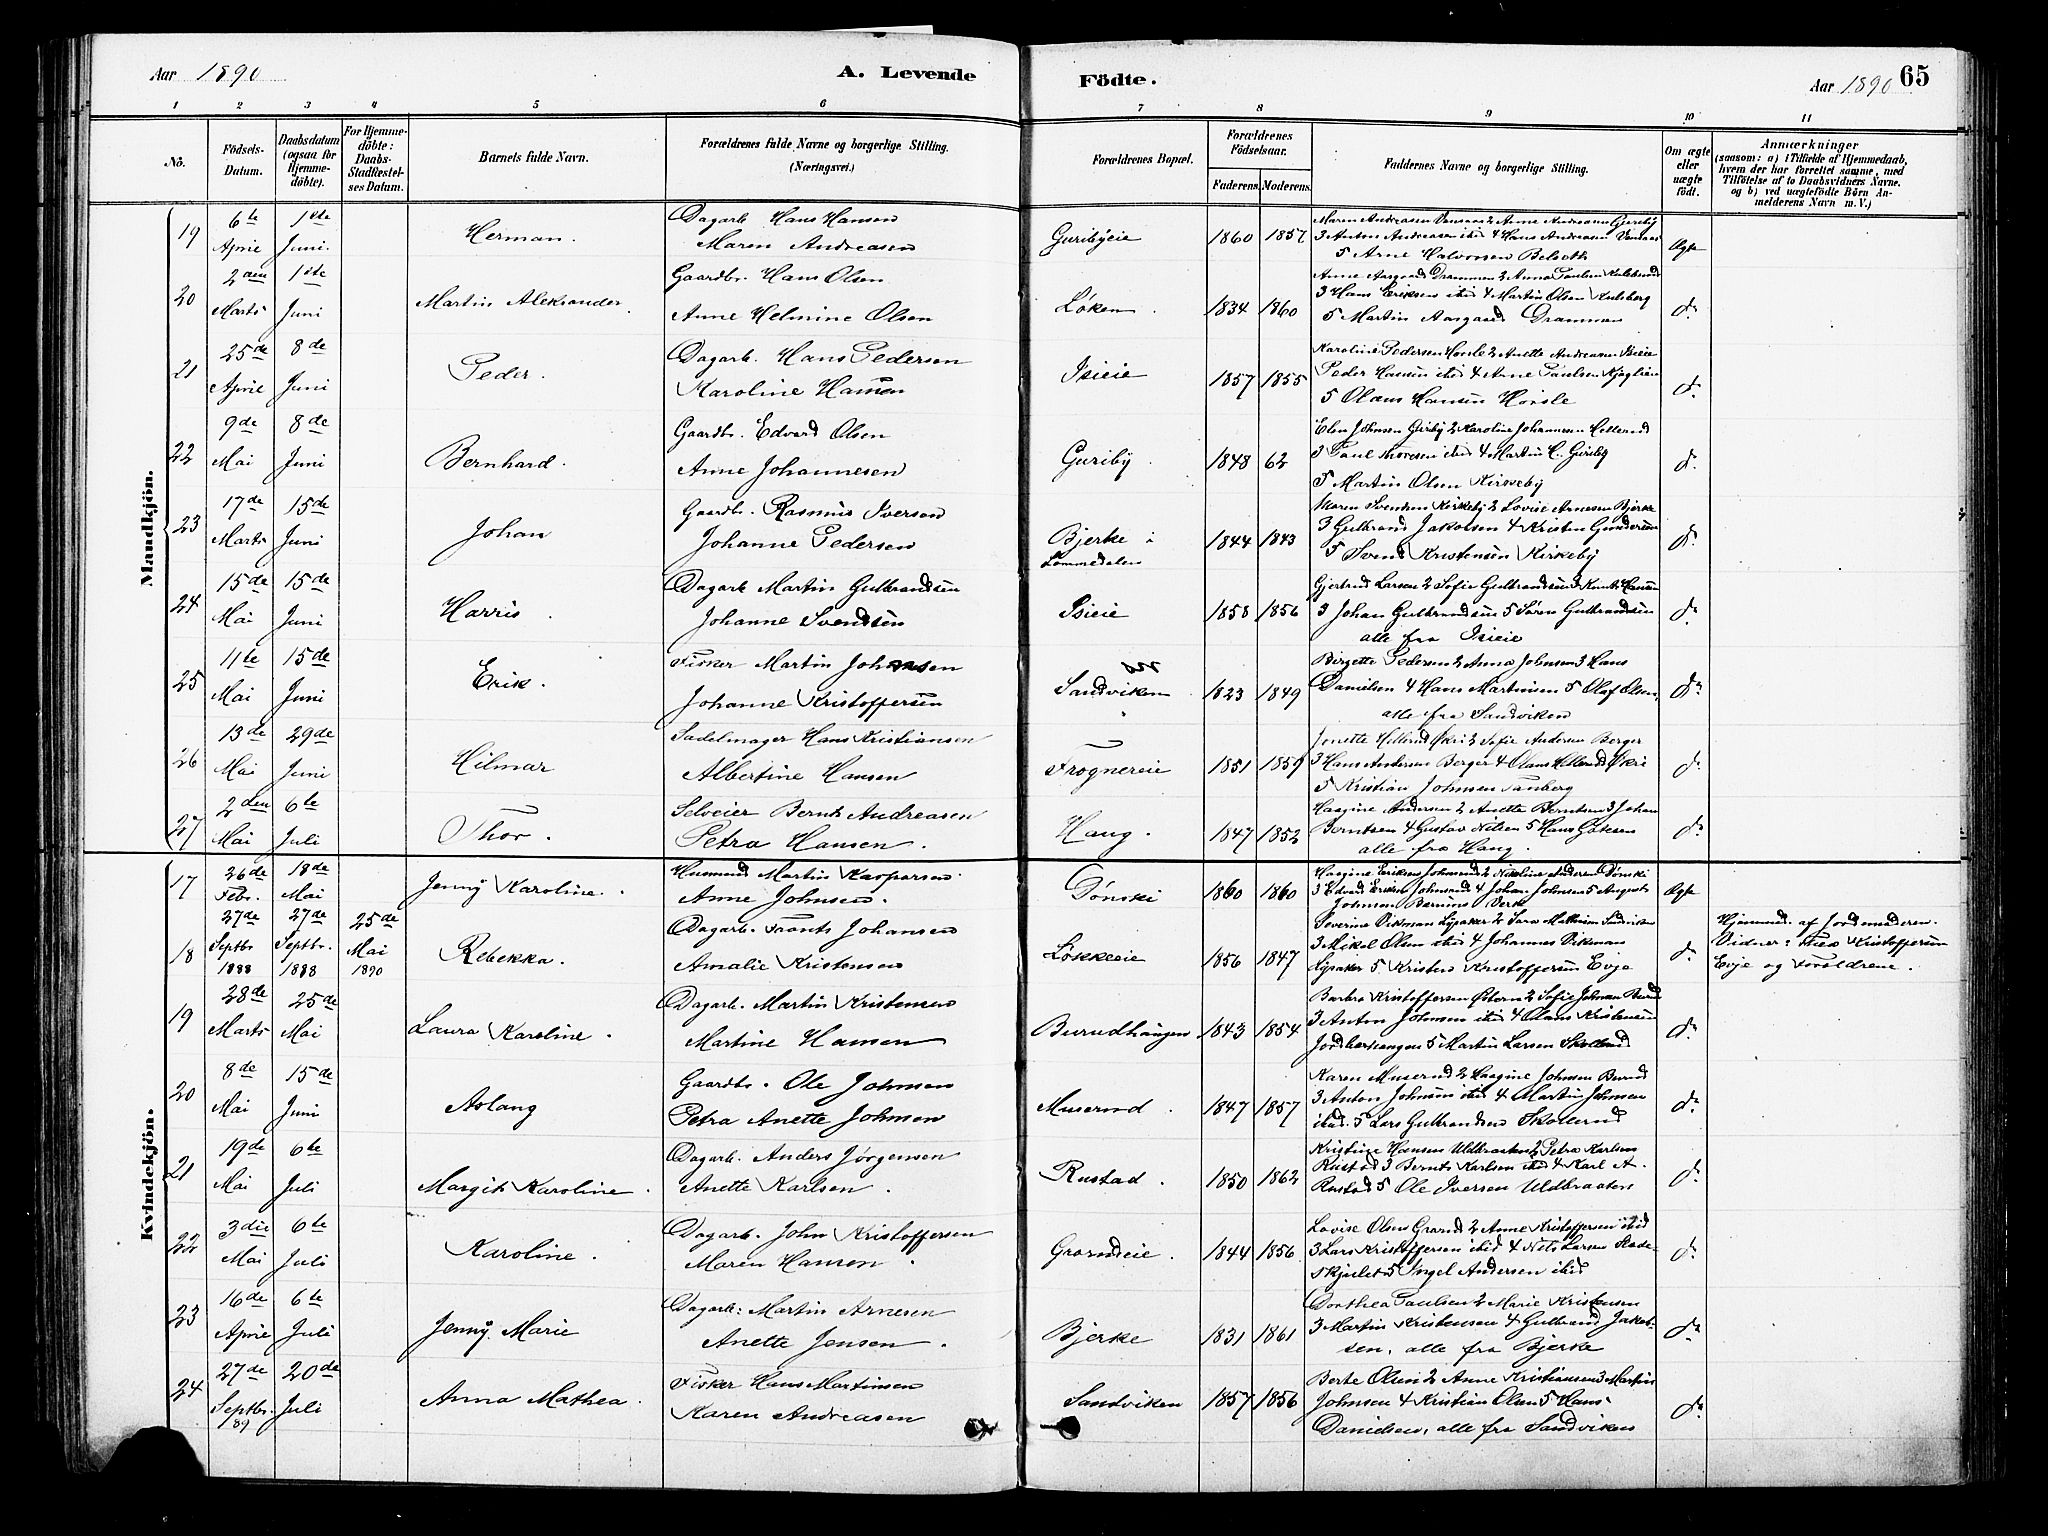 Aar 1890
A. Levende
Födte.
Aar 1890
65
1 2 3 4 5 6 7 8 9 10 11
No.
Födsels-Datum.
Daabsdatum (ogsaa for Hjemme-döbte).
For Hjemme-döbte: Daabs-Stadfæstel-ses Datum.
Barnets fulde Navn.
Forældrenes fulde Navne og borgerlige Stilling. (Næringsvei.)
Forældrenes Bopæl.
Forældrenes Födselsaar.
Faderens. Moderens.
Faddernes Navne og borgerlige Stilling.
Om ægte eller uægte födt.
Anmærkninger (saasom: a) i Tilfælde af Hjemmedaab, hvem der har forrettet samme, med Tilföielse af to Daabsvidners Navne, og b) ved uægtefödte Börn An-melderens Navn m. V.)
Mandkjön.
19 6te April 1ste Juni. Herman. Dagarb. Hans Hansen Maren Andreasen Guribyeie 1860 1857
3 Anton Andreasen ibid 4 Hans Andreasen
5 Arne Halvorsen Ægte
20 2den Marts 1ste Juni Martin Aleksander. Gaardbr. Hans Olsen Anne Helmine Olsen Løken. 1834 1860
Anne Aasgaard Drammen 2 Anna Paulsen
3 Hans Eriksen ibid 4 Martin Olsen
5 Martin Aasgaard Drammen do
21 25de April 8de Juni Peder. Dagarb. Hans Pedersen Karoline Hansen Isieie 1857 1855
Karoline Pedersen Horsle 2 Anette Andreasen Isieie
Peder Hansen ibid 4 Arne Paulsen
5 Olaus Hansen Horsle do
22 9de Mai 8de Juni Bernhard. Gaardbr. Edvard Olsen Anne Johannesen Guriby. 1848 62
Johnsen 2 Karoline Johannesen Hellerud
3 Paul Thoresen ibid 4 Martin Guriby
5 Martin Olsen Kirkeby do
23 17de Marts 15de Juni Johan Gaardbr. Rasmus Iversen Johanne Pedersen Bjerke i Lommedalen 1844 1843
Maren Svendsen Kirkeby 2 Lovise Arnesen Bjerke
3 Gulbrand Jakobsen 4 Kristen Gundersen
5 Svend Kristensen Kirkeby do
24 15de Mai 15de Juni Harris. Dagarb. Martin Gulbrandsen Johanne Svendsen Isieie 1858 1856
Gjertrud Larsen 2 Sofie Gulbrandsen 3 Knut Hansen
3 Johan Gulbrandsen 5 Søren Gulbrandsen
alle fra Isieie do
25 11te Mai 15de Juni Erik. Fisker Martin Johnsen Johanne Kristoffersen Sandviken 1823 1849
Birgette Pedersen 2 Anna Johnsen 3 Hans
Danielsen 4 Hans Martinsen 5 Olaf Olsen,
alle fra Sandviken do
26 13de Mai 29de Juni Hilmar Sadelmager Hans Kristiansen Albertine Hansen Frognereie 1851 1859
Jonette Hellerud Økri 2 Sofie Andersen Berger
3 Hans Andersen Berger 4 Olaus Hellerud Økri
5 Kristian Johnsen Tanberg do
27 2den Mai 6te Juli Thor. Selveier Bernt Andreasen Petra Hansen. Haug. 1847 1852
Haagine Andersen 2 Anette Berntsen 3 Johan
Berntsen 4 Gustav Nilsen 5 Hans
alle fra Haug. do
Kvindekjön.
17 26de Febr. 18de Mai Jenny Karoline. Husmand Martin Kaspersen. Anne Johnsen. Dønski 1860 1860
Haagine Eriksen Johnsrud 2 Nikoline Andersen Dønski
3 Edvard Eriksen Johnsrud 4 Johan Johnsen 5 August
Johnsen Bærums Verk Ægte
18 27de Septbr 1888 27de Septbr. 1888 25de Mai 1890 Rebekka. Dagarb. Frants Johansen Amalie Kristensen Løkkeeie 1856 1847
Severine Dikman Lysaker 2 Sara Mathisen Sandviken
3 Mikal Olsen ibid 4 Johannes Dikman
Lysaker 5 Kristen Kristoffersen Evje do
Hjemmed. af Jordemoderen.
Vidner: Kristoffersen
Evje og Forældrene.
19 28de Marts 25de Mai Laura Karoline. Dagarb. Martin Kristensen Martine Hansen Burudhaugen 1843 1854
Barbro Kristoffersen Østern 2 Sofie Johnsen Burud
3 Anton Johnsen ibid 4 Olaus Kristensen
5 Martin Larsen Skollerud do
20 8de Mai 15de Juni Aslaug Gaardbr. Ole Johnsen Petra Anette Johnsen Muserud. 1847 1857
Karen Muserud 2 Haagine Johnsen Burud
3 Anton Johnsen ibid 4 Martin Johnsen
ibid. 5 Lars Gulbrandsen Skollerud do
21 19de Mai 6te Juli Margit Karoline. Dagarb. Anders Jørgensen Anette Karlsen. Rustad. 1850 1862
Kristine Hansen Uldbraaten 2 Petra Karlsen
Rustad 3 Bernt Karlsen ibid 4 Karl A.
Rustad 5 Ole Iversen Uldbraaten do
22 3die Mai 6te Juli Karoline. Dagarb. John Kristoffersen Maren Hansen. Gramseie. 1844 1856
Lovise Olsen 2 Anne Kristoffersen ibid
3 Lars Kristoffersen ibid 4 Nils Larsen
5 Ingel Andersen ibid do
23 16de April 6te Juli Jenny Marie Dagarb: Martin Arnesen Anette Jensen. Bjerke 1831 1861
Dorthea Paulsen 2 Marie Kristensen
3 Martin Kristensen 4 Gulbrand Jakob-
sen, alle fra Bjerke do
24 27de Septbr. /89 20de Juli Anna Mathea. Fisker Hans Martinsen Karen Andreasen Sandviken 1857 1856
Berte Olsen 2 Anne Kristiansen 3 Martin
Johnsen 4 Kristian Olsen 5 Hans
Danielsen, alle fra Sandviken do